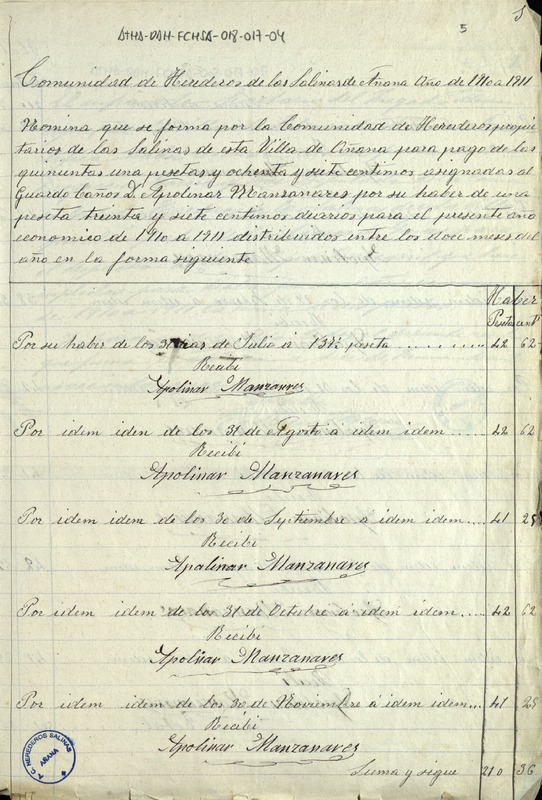 ATHA-DAH-FCHSA-018-017-04
5
Comunidad de Herederos de las Salinas de Añana Año de 1910 a 1911
Nomina que se forma por la Comunidad de Herederos propie
tarios de las Salinas de esta Villa de Añana para pago de las
quinientas una pesetas y ochenta y siete centimos asignadas al
Guarda Caños D. Apolinar Manzanares por su haber de una
peseta treinta y siete centimos diarios para el presente año
economico de 1910 a 1911 distribuidos entre los doce meses del
año en la forma siguiente
Haber
Pesetas cents
Por su haber de los 31 dias de Julio á 1'37½ peseta .......... 42 62
Recibi
Apolinar Manzanares
Por idem iden de los 31 de Agosto á idem idem ..... 42 62
Recibi
Apolinar Manzanares
Por idem idem de los 30 de Septiembre á idem idem ... 41 25
Recibi
Apolinar Manzanares
Por idem idem de los 31 de Octubre á idem idem ..... 42 62
Recibi
Apolinar Manzanares
Por idem idem de los 30 de Noviembre á idem idem ... 41 25
Recibi
Apolinar Manzanares
Suma y sigue 210 36
A.C. HEREDEROS SALINAS
AÑANA